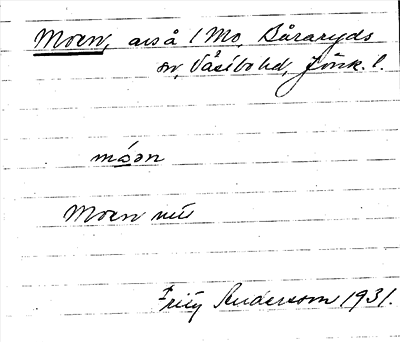 Moen, avså 1 Mo, Båraryds
sn, Västbo hd, Jönk. l.
móən
Moen nu
Fritz Anderson 1931.